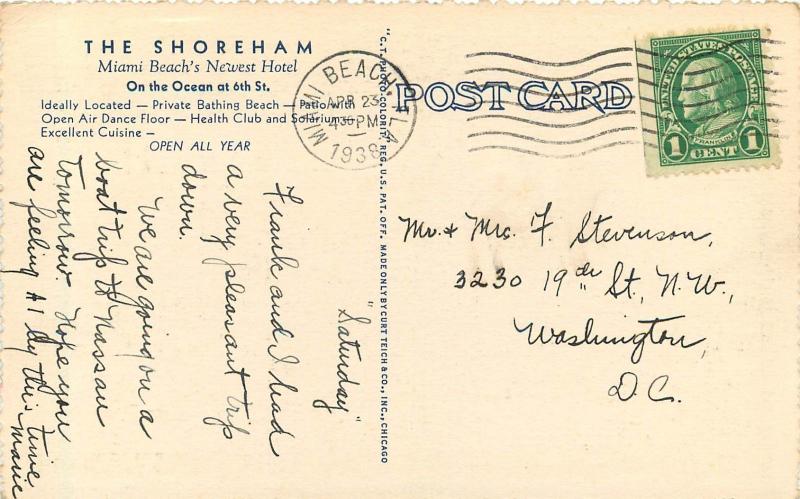 THE SHOREHAM
Miami Beach's Newest Hotel
On the Ocean at 6th St.
Ideally Located — Private Bathing Beach — Patio with
Open Air Dance Floor — Health Club and Solarium —
Excellent Cuisine —
OPEN ALL YEAR
MIAMI BEACH, FLA.
APR 23
430 PM
1938
POST CARD
UNITED STATES POSTAGE
FRANKLIN
1 CENT 1
"C.T. PHOTO-COLORIT" REG. U.S. PAT. OFF. MADE ONLY BY CURT TEICH & CO., INC., CHICAGO
"Saturday"
Frank and I had
a very pleasant trip
down.
We are going on a
boat trip to Nassau
tomorrow. Hope you
are feeling A1 by this time
Marie
Mr. & Mrs. F. Stevenson,
3230 19th St., N.W.,
Washington,
D.C.